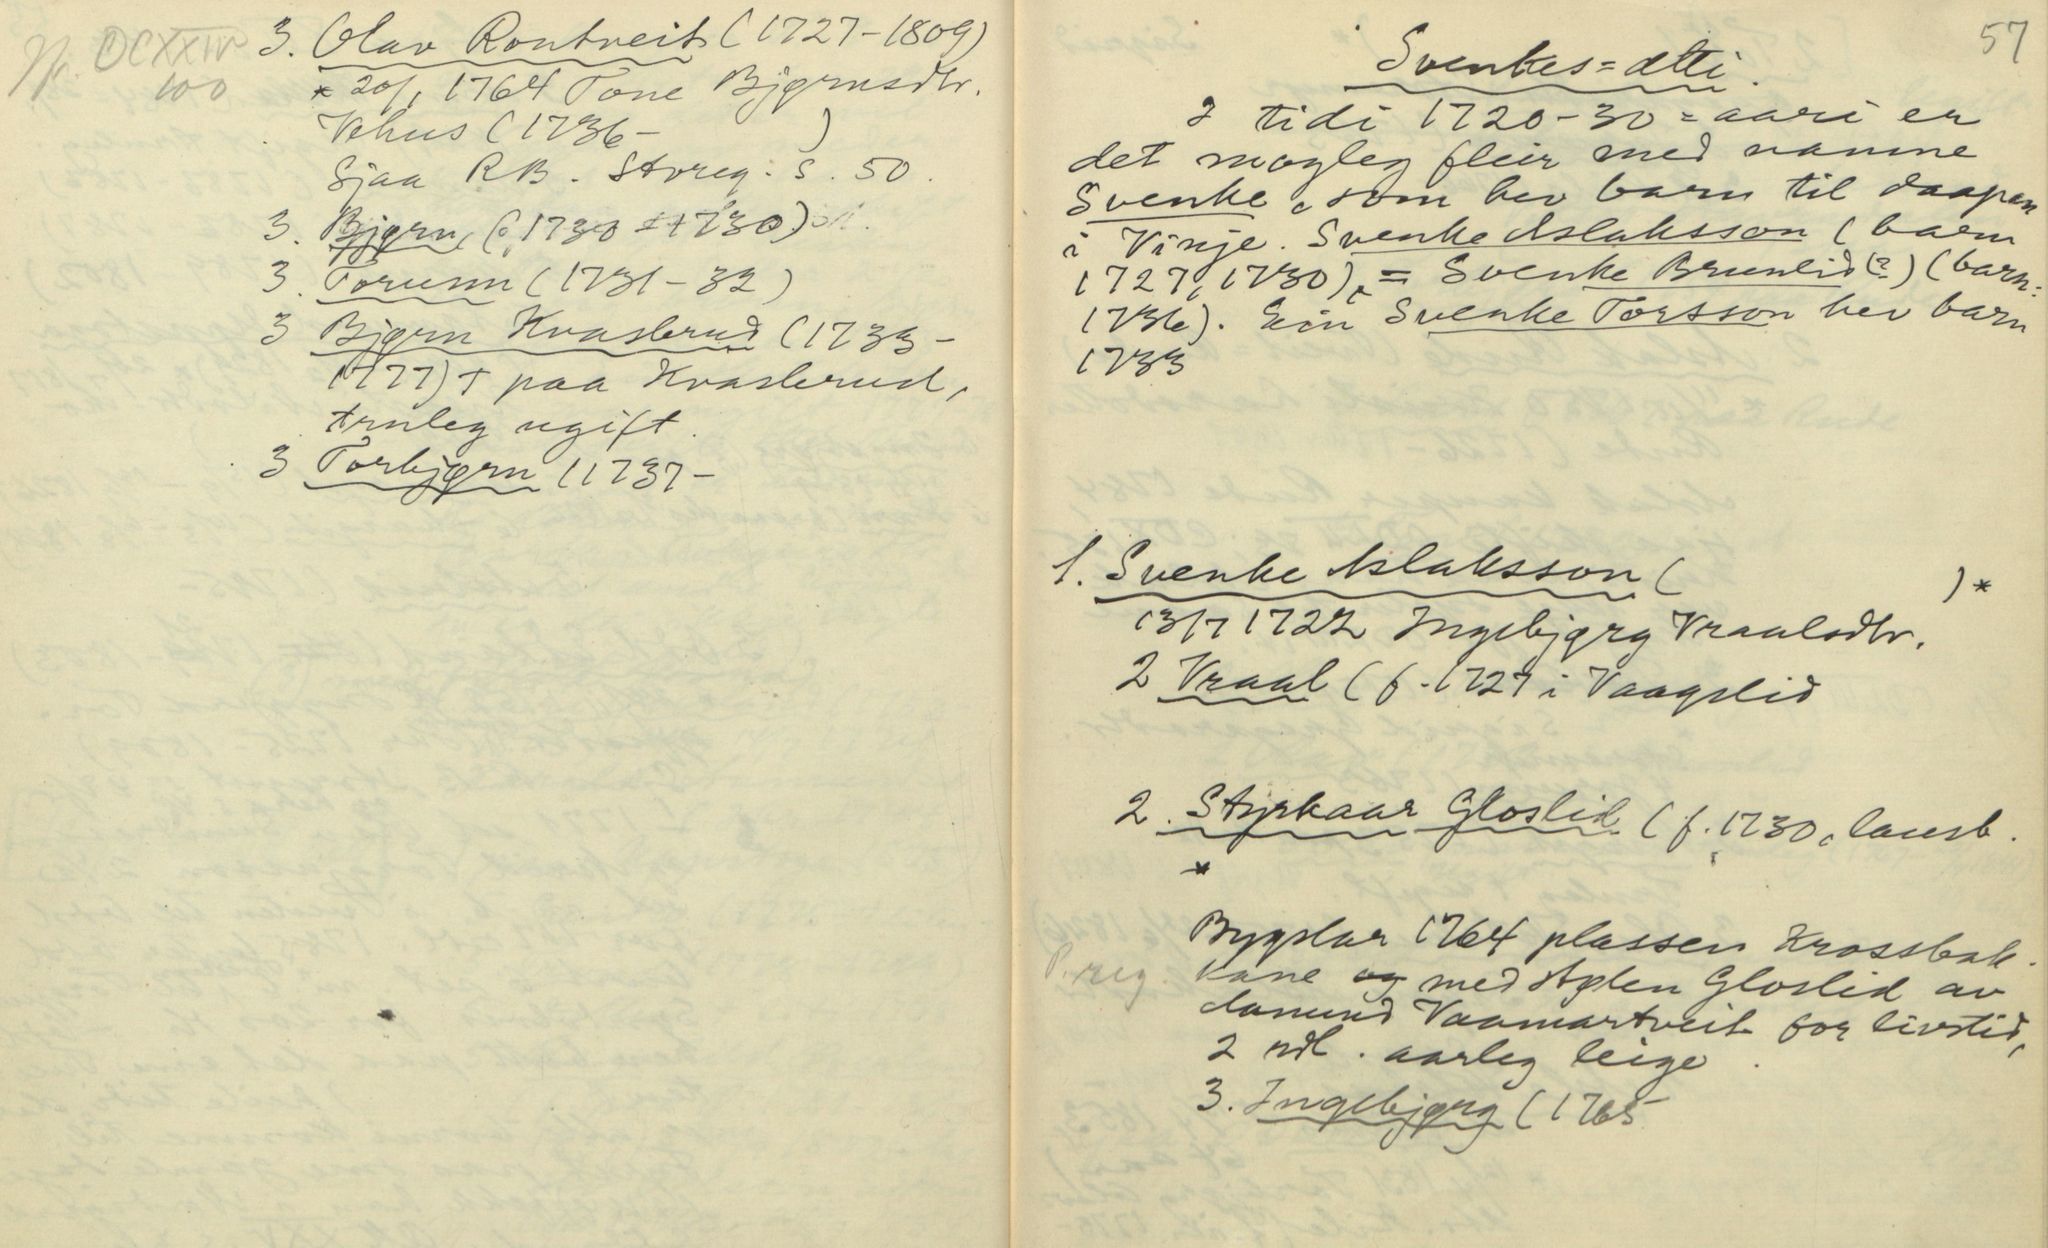 CCXXIV
100
3. Olav Rontveit (1727-1809)
* 20/1 1764 Tone Bjørnsdtr.
Vehus (1736-          )
Sjaa R B. Storeg. S. 50.
3. Bjørn, (1730
3. Torunn (1731-32)
3 Bjørn Kvasberud (1733-
1777) + paa Kvasberud,
truleg ugift.
3 Torbjørn (1737-
57
Svenkes=ætti.
I tidi 1720-30=aari er
det mogleg fleir med namne
Svenke, som hev barn til daapen
i Vinje. Svenke Aslaksson (barn
1727, 1730), = Svenke Brunlid(?) (barn:
1736). Ein Svenke Torsson hev barn
1733
1. Svenke Aslaksson (          ) *
13/7 1722 Ingebjørg Vraalsdtr.
2 Vraal (f. 1727 i Vaagslid
2. Styrkaar Gloslid (f. 1730, lausb.
*
Bygslar 1764 plassen Krossbak-
P. reg. kane og med Aplen Gloslid av
Aamund Vaamartveit for livstid,
2 rdl. aarleg leige.
3. Ingebjørg (1765